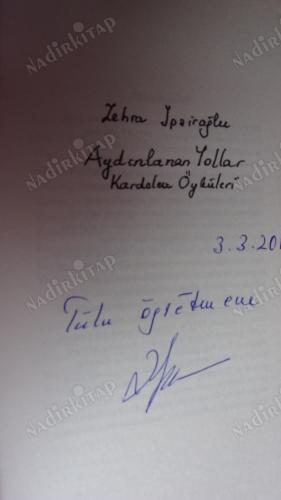 Zehra İpşiroğlu
Aydınlanan Yollar
Kardelen Öyküleri
3.3.20
Tülu öğretmene
NADİRKİTAP